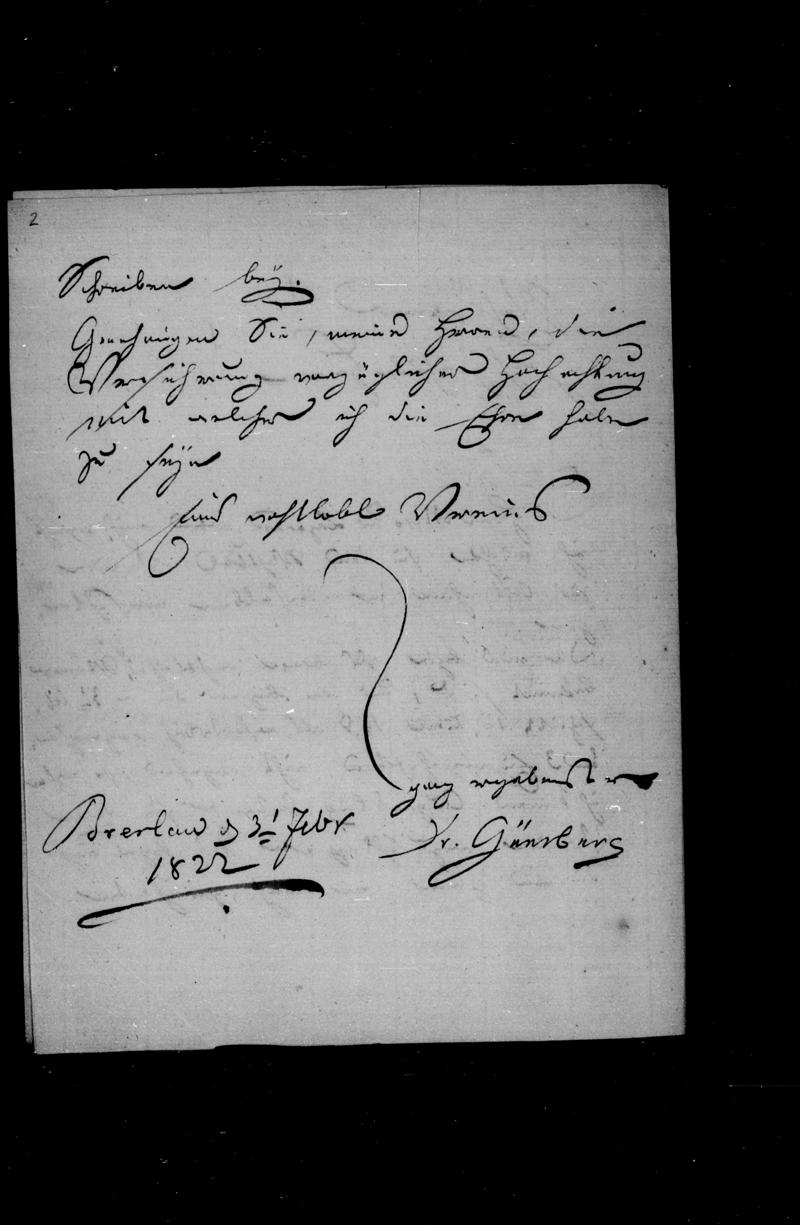 2
Schreiben bey.
Genehmigen Sie, meine Herren, die
Versicherung vorzüglicher Hochachtung
mit welcher ich die Ehre habe
zu seyn
Eines wohllobl Vereins
ganz ergebenster
Breslau d 3t Febr Dr. Günsburg
1822